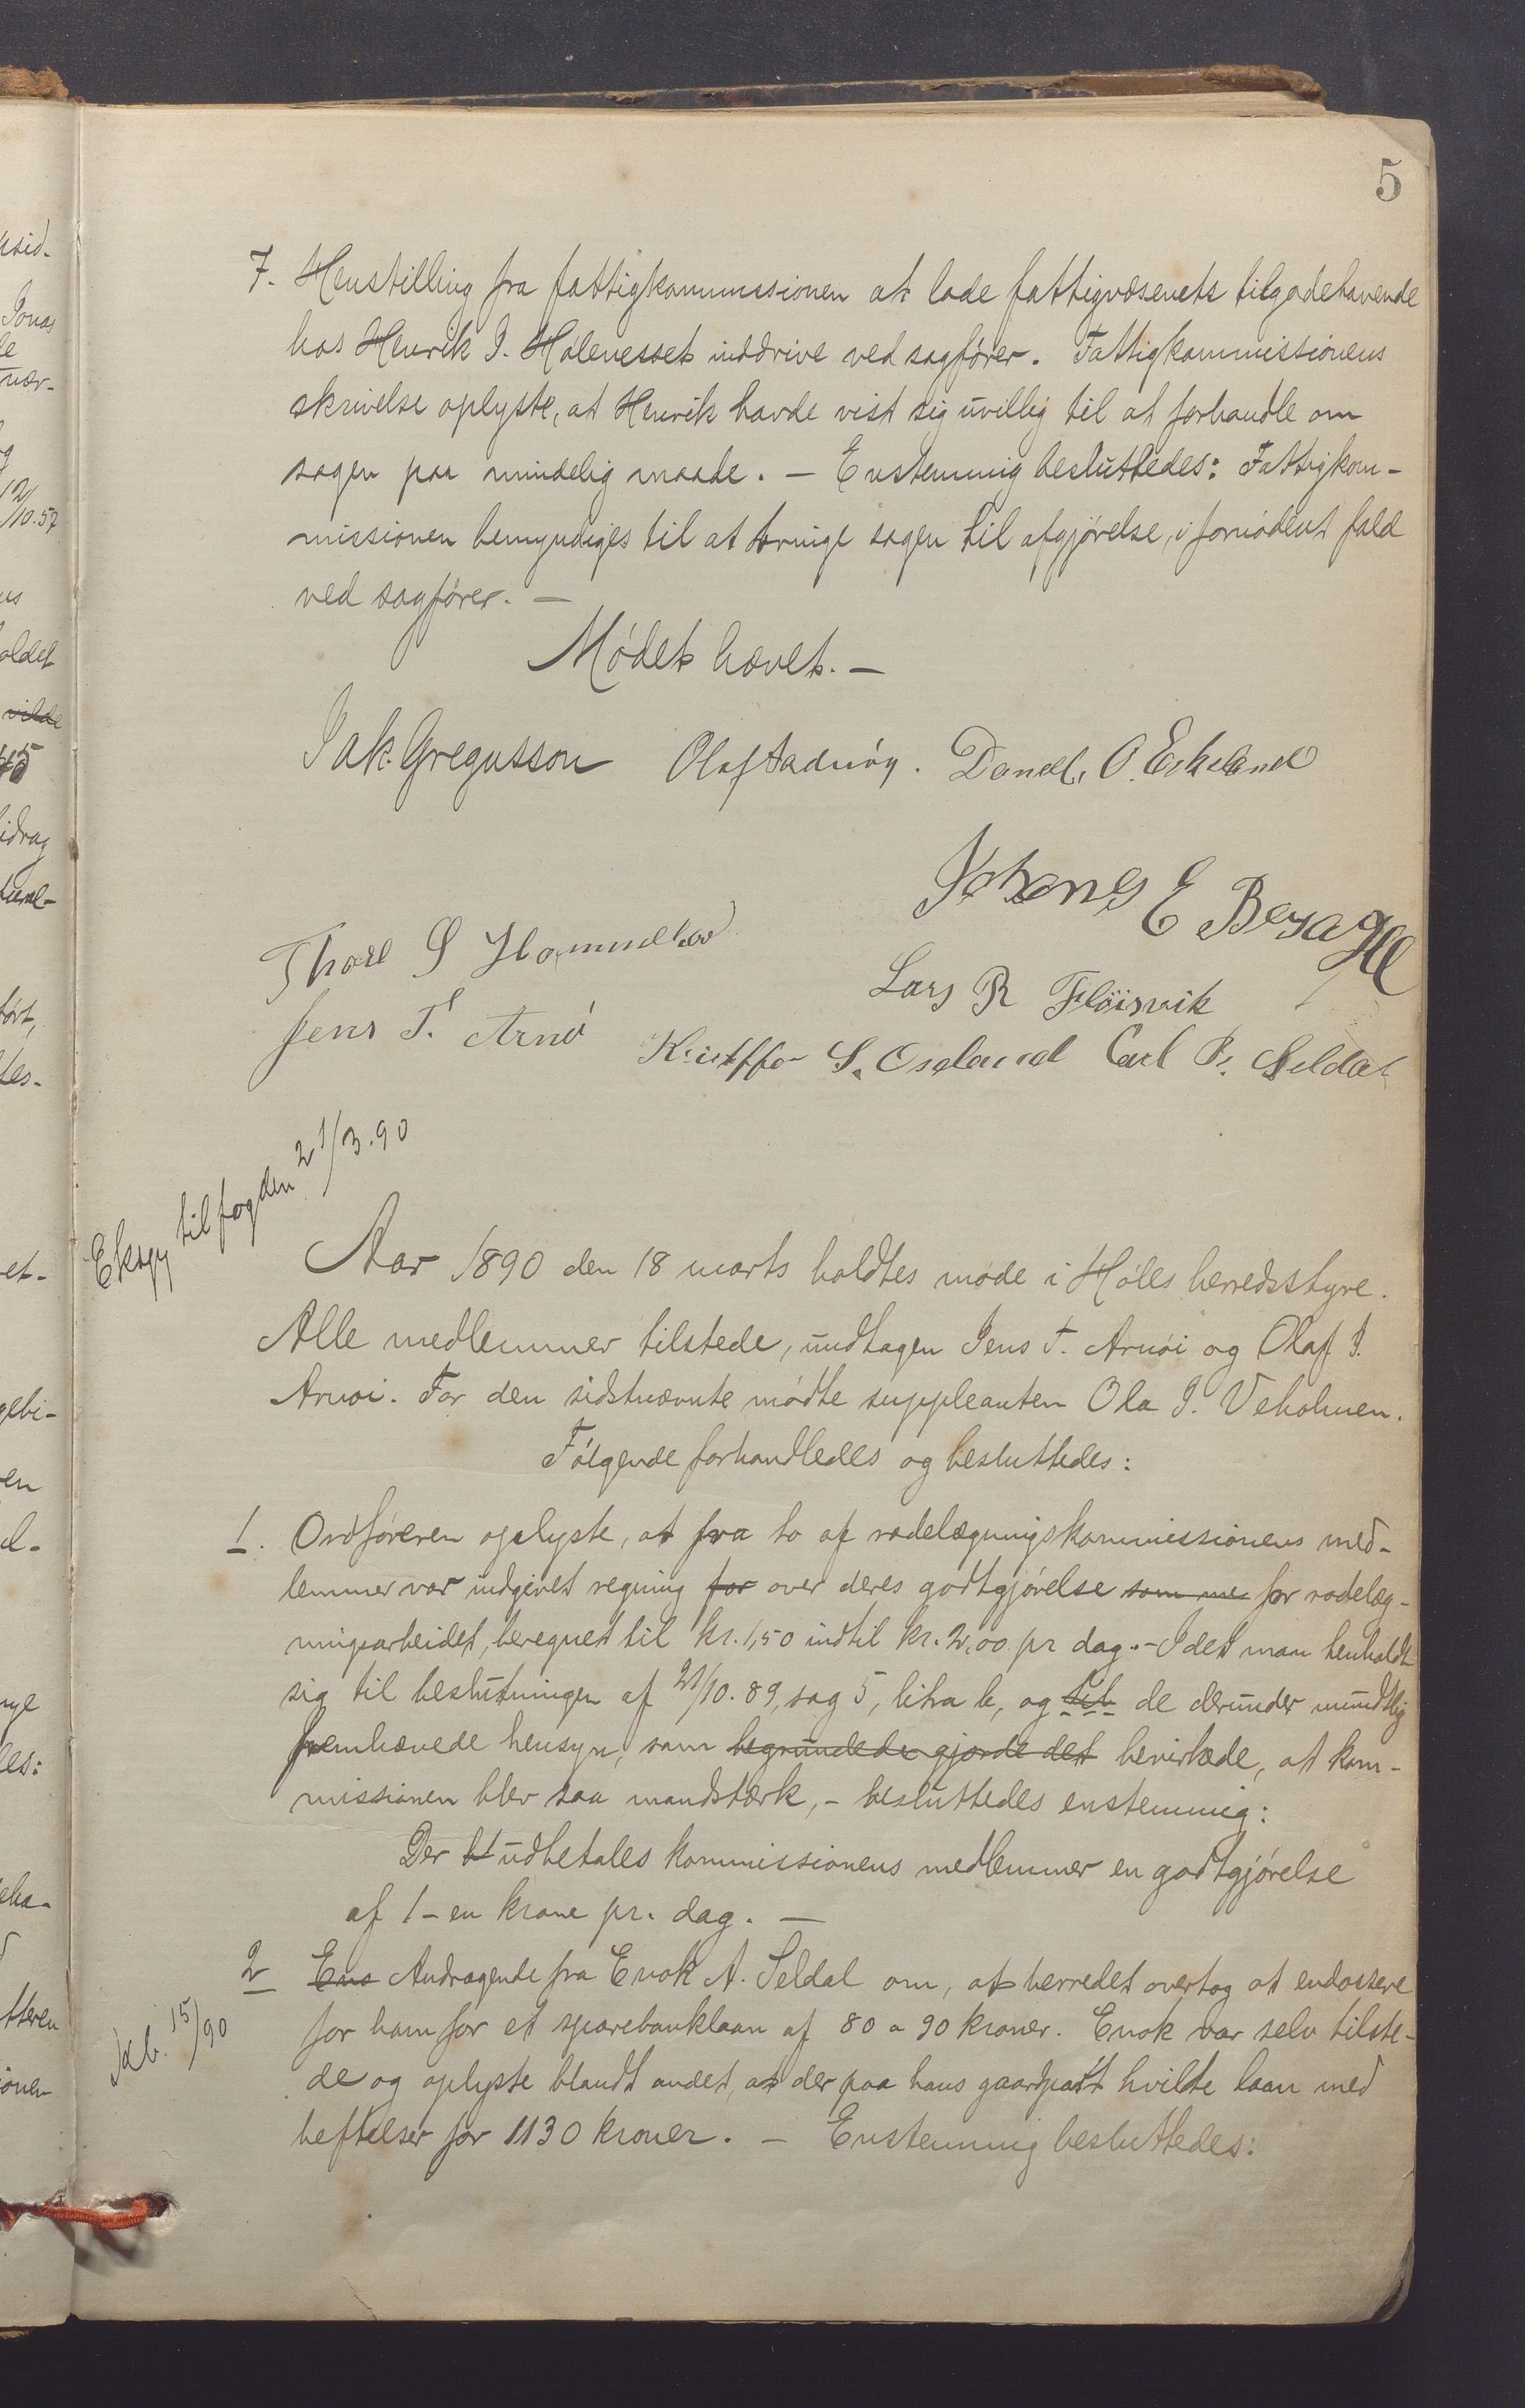 5
7. Henstilling fra fattigkommissionen at lade fattigvæsenets tilgodehavende
hos Henrik I. Hølenesset inddrive ved sagfører. Fattigkommissionens
skrivelse oplyste, at Henrik havde vist sig uvillig til at forhandle om
sagen paa mindelig maade. — Enstemmig besluttedes: Fattigkom-
missionen bemyndiges til at bringe sagen til afgjørelse, i fornødent fald
ved sagfører. —
Mødet hævet. —
Jak. Gregusson Olaf Aadnøy. Daniel O. Eskeland
Johanes E Bersagel
Thore S Hommeland
Lars R Fløisvik
Jens T. Arnø
Kristoffer S. Osaland Carl P. Seldal
Eksp. til fogden 21/3.90
Aar 1890 den 18 marts holdtes møde i Høles herredsstyre.
Alle medlemmer tilstede, undtagen Jens T. Arnøi og Olaf I.
Arnøi. For den sidstnævnte mødte suppleanten Ola I. Veholmen.
Følgende forhandledes og besluttedes:
1. Ordføreren oplyste, at fra to af rodelægningskommissionens med-
lemmer var indgivet regning for over deres godtgjørelse som me for rodelæg-
ningsarbeidet, beregnet til kr. 1,50 indtil kr. 2,00 pr dag. - Idet man henholdt
sig til beslutningen af 21/10.89, sag 5, litra b, og til de derunder mundtlig
fremhævede hensyn, som begrundede gjorde det bevirkede, at kom-
missionen blev saa mandstærk, - besluttedes enstemmig:
Der bl udbetales kommissionens medlemmer en godtgjørelse
af 1 - en krone pr. dag. —
2 Eno Andragende fra Enok A. Seldal om, at herredet overtog at endossere
for ham for et sparebanklaan af 80 a 90 kroner. Enok var selv tilste-
de og oplyste blandt andet, at der paa hans gaardpart hvilte laan med
heftelser for 1130 kroner. — Enstemmig besluttedes:
Kb. 15/90